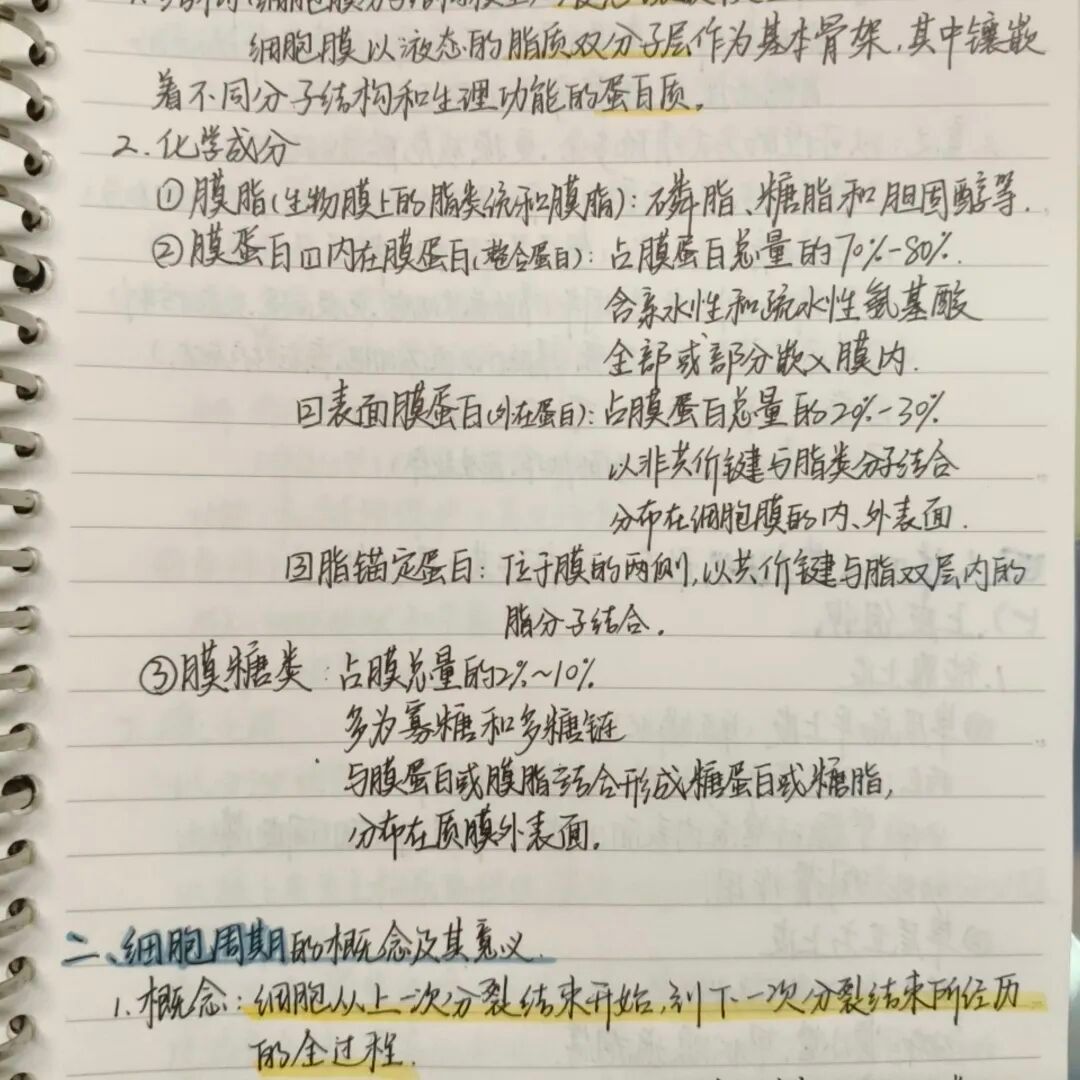 细胞膜以液态的脂质双分子层作为基本骨架,其中镶嵌
着不同分子结构和生理功能的蛋白质。
2.化学成分
①膜脂(生物膜上的脂类统称膜脂):磷脂、糖脂和胆固醇等.
②膜蛋白 1 内在膜蛋白(整合蛋白):占膜蛋白总量的70%-80%.
含亲水性和疏水性氨基酸
全部或部分嵌入膜内.
2 表面膜蛋白(外在蛋白):占膜蛋白总量的20%-30%
以非共价键与脂类分子结合
分布在细胞膜的内、外表面.
3 脂锚定蛋白:位于膜的两侧,以共价键与脂双层内的
脂分子结合.
③膜糖类:占膜总量的2%~10%
多为寡糖和多糖链
与膜蛋白或膜脂结合形成糖蛋白或糖脂,
分布在质膜外表面。
二、细胞周期的概念及其意义.
1.概念:细胞从上一次分裂结束开始,到下一次分裂结束所经历
的全过程.